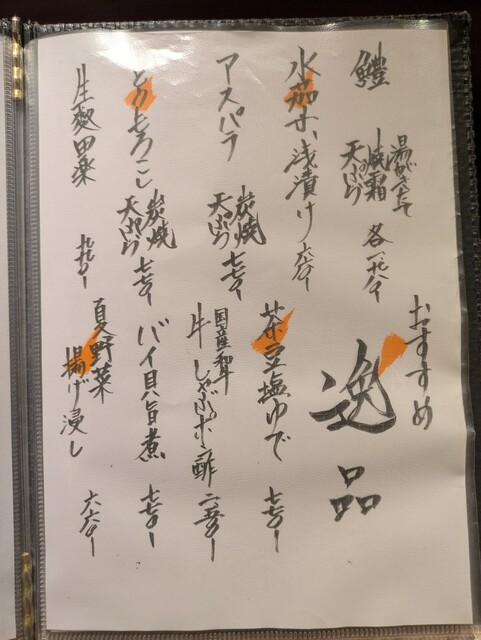 おすすめ
逸品
鱧
湯がき
焼霜
天ぷら
各
水茄子浅漬け 六六〇ー
アスパラ
炭焼
天ぷら
七七〇ー
とうもろこし
炭焼
天ぷら
七七〇ー
生麩田楽 九九〇ー
茶豆塩ゆで 七七〇ー
国産和牛
牛しゃぶポン酢
バイ貝旨煮 七七〇ー
夏野菜
揚げ浸し 六六〇ー